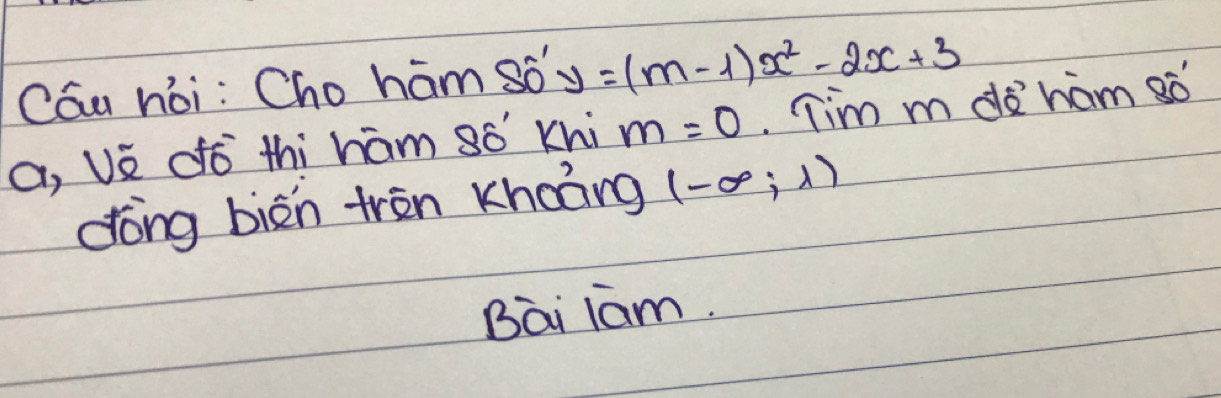 Câu hỏi: Cho hàm số y = (m-1)x² - 2x + 3
a, Vẽ đồ thị hàm số khi m = 0. Tìm m để hàm số
đồng biến trên khoảng (-∞; 1)
Bài làm.